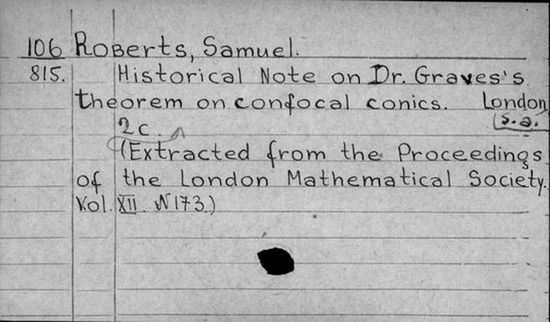 106 Roberts, Samuel.
815. Historical Note on Dr. Graves's
theorem on confocal conics. London
2c. s.a.
(Extracted from the Proceedings
of the London Mathematical Society.
Vol. XII. N 173.)